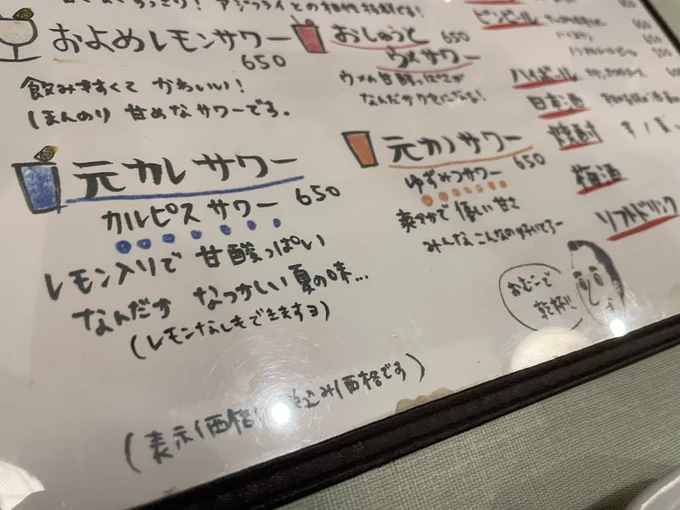 およめレモンサワー
650
飲みやすくて かわいい!
ほんのり 甘めなサワーです。
おしゅうと
ウメサワー
650
なんだかクセになる!
元カレ サワー
カルピス サワー 650
レモン入りで 甘酸っぱい
なんだか なつかしい 夏の味…
(レモンなしもできますヨ)
元カノ サワー
650
ゆずみつサワー
爽やかで 優しい 甘さ
ビンビール
650
ハイボール
日本酒
焼酎
梅酒
ソフトドリンク
おとこで
乾杯!!
(表示価格は税込み価格です)